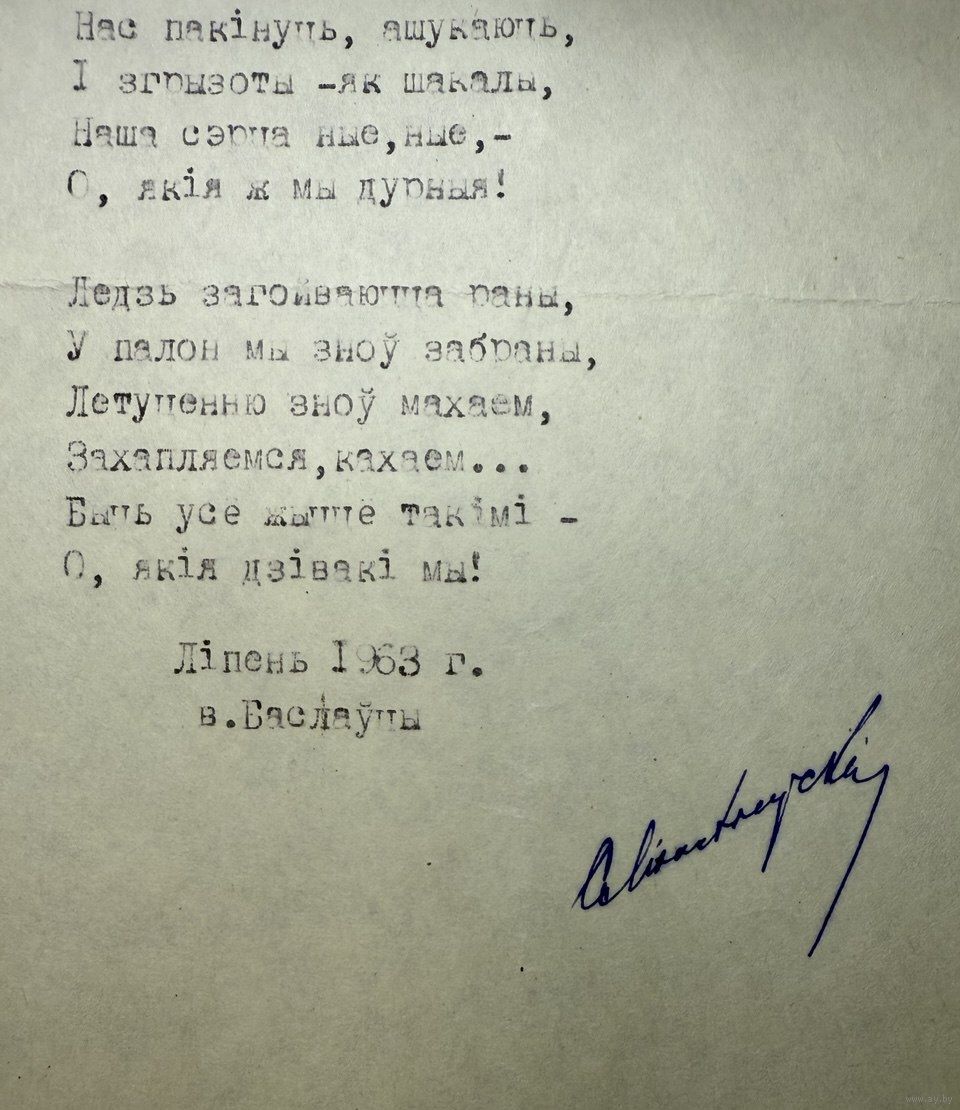 Нас пакінуць, ашукаюць,
І згрызоты -як шакалы,
Наша сэрца ные,ные,-
О, якія ж мы дурныя!
Ледзь загойваюцца раны,
У палон мы зноў забраны,
Летуценню зноў махаем,
Захапляемся,кахаем...
Быць усё жыццё такімі -
О, якія дзівакі мы!
Ліпень І963 г.
в.Баслаўцы
www.ay.by